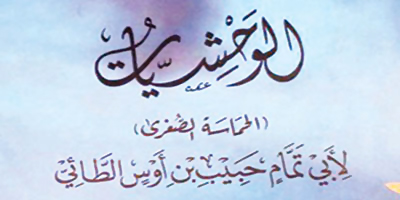 الوَحْشِيَّات
(الحَمَاسَة الصُّغرىٰ)
لِأَبِي تَمَّامٍ حَبِيْبِ بْنِ أَوْسٍ الطَّائِيِّ